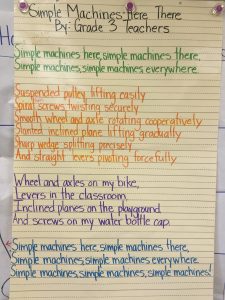 Simple Machines-Here There
By: Grade 3 Teachers
Simple machines here, simple machines there,
Simple machines, simple machines everywhere.
Suspended pulley lifting easily
Spiral screws twisting securely
Smooth wheel and axle rotating cooperatively
Slanted inclined plane lifting gradually
Sharp wedge splitting precisely
And straight levers pivoting forcefully
Wheel and axles on my bike,
Levers in the classroom,
Inclined planes on the playground
And screws on my water bottle cap.
Simple machines here, simple machines there,
Simple machines, simple machines everywhere.
Simple machines, simple machines, simple machines!